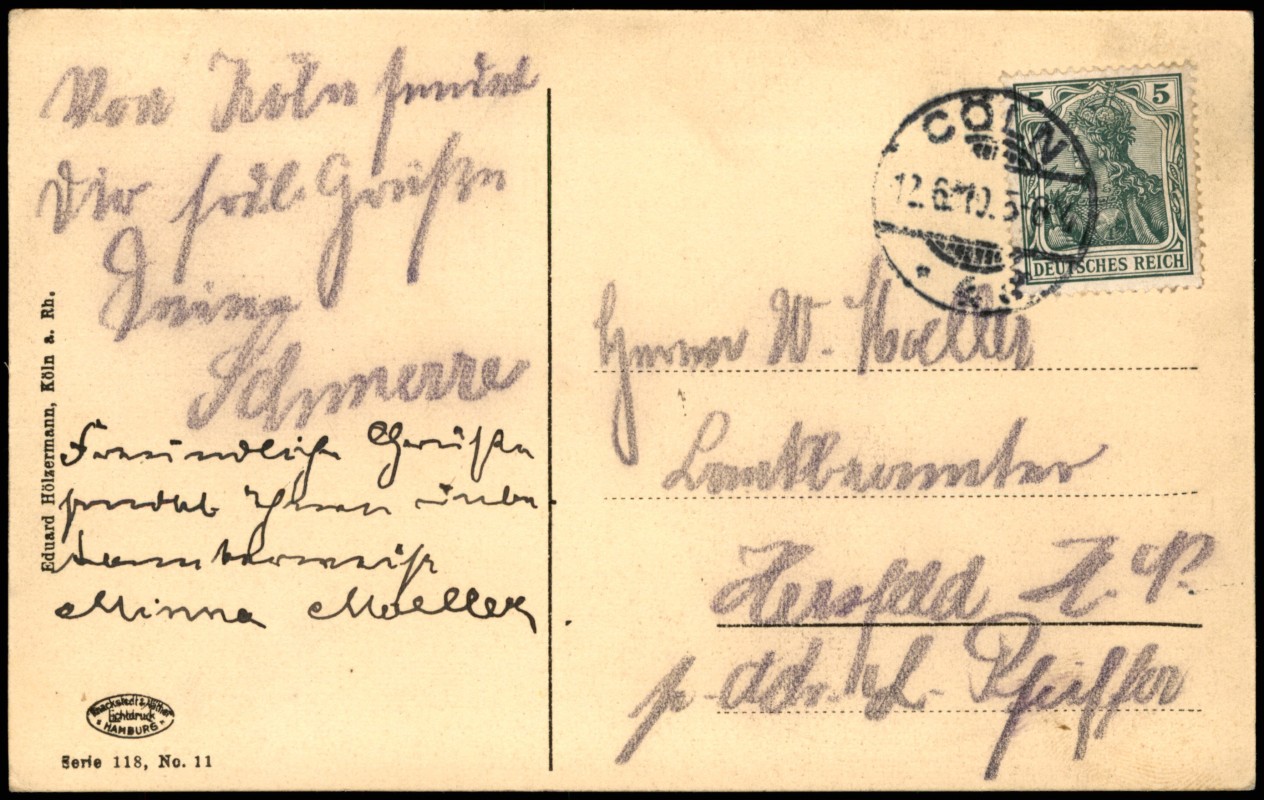 Von Köln sendet
Dir freil. Grüße
Deine
Schmerre
Freundliche Grüße
sendet Ihnen unbe-
kannterweise
Minna Moeller.
Eduard Hölzermann, Köln a. Rh.
Knackstedt & Näther
Lichtdruck
HAMBURG
Serie 118, No. 11
5 5
DEUTSCHES REICH
CÖLN
12.6.10. 5-6 N.
Herrn W. Moeller
Hersfeld H. N.
p. Adr. L. Pfeiffer